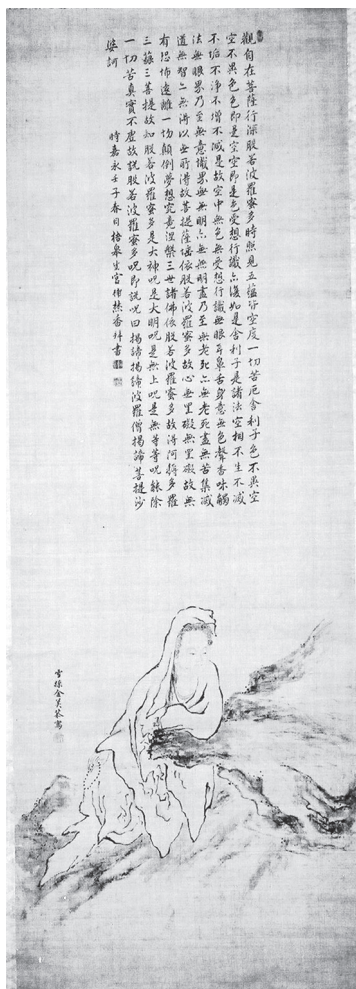 觀自在菩薩行深般若波羅蜜多時照見五蘊皆空度一切苦厄舍利子色不異空
空不異色色即是空空即是色受想行識亦復如是舍利子是諸法空相不生不滅
不垢不淨不增不減是故空中無色無受想行識無眼耳鼻舌身意無色聲香味觸
法無眼界乃至無意識界無無明亦無無明盡乃至無老死亦無老死盡無苦集滅
道無智亦無得以無所得故菩提薩埵依般若波羅蜜多故心無罣礙無罣礙故無
有恐怖遠離一切顛倒夢想究竟涅槃三世諸佛依般若波羅蜜多故得阿耨多羅
三藐三菩提故知般若波羅蜜多是大神呪是大明呪是無上呪是無等等呪能除
一切苦真實不虛故說般若波羅蜜多呪即說呪曰揭諦揭諦波羅僧揭諦菩提沙
婆訶
時嘉永壬子春日拾翠生宮香拜書
雪金美寫